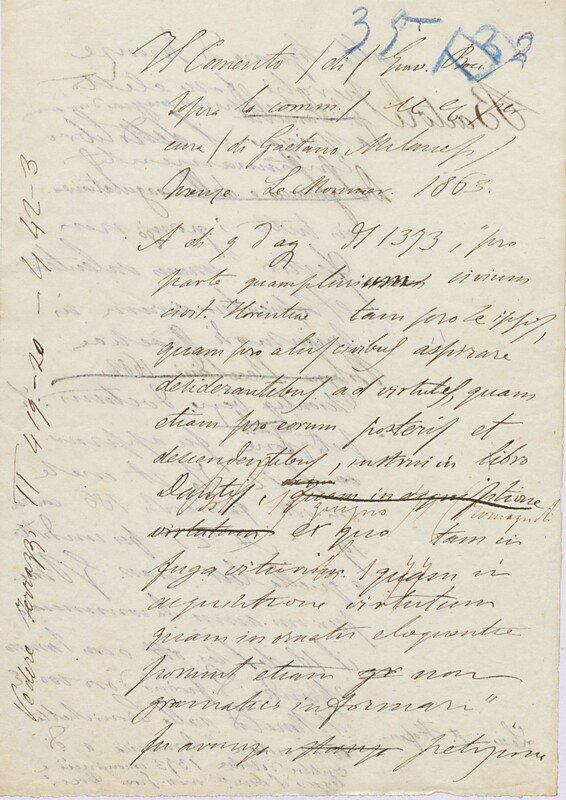 35 B 2
Il Comento /di/ Giov. Bocc.
sopra la comm./ ... per
cura /di Gaetano Milanesi/
Firenze Le Monnier 1863.
A di 9 d'ag. Il 1373, "pro
parte quamplurium civium
civit. Florentiae tam pro se ipsis,
quam pro aliis civibus aspirare
desiderantibus ad virtutes, quam
etiam pro eorum posteris et
descendentibus, instrui in libro
Dantis, quam in acquisitione
giugno
virtutum ex quo tam in
fuga vitiorum quam in
acquisitione virtutum
quam in ornatu eloquentie
possunt etiam gr non
grammatici informari"
fu avanz petizione
Vedere II 419-20 — 4 42-3